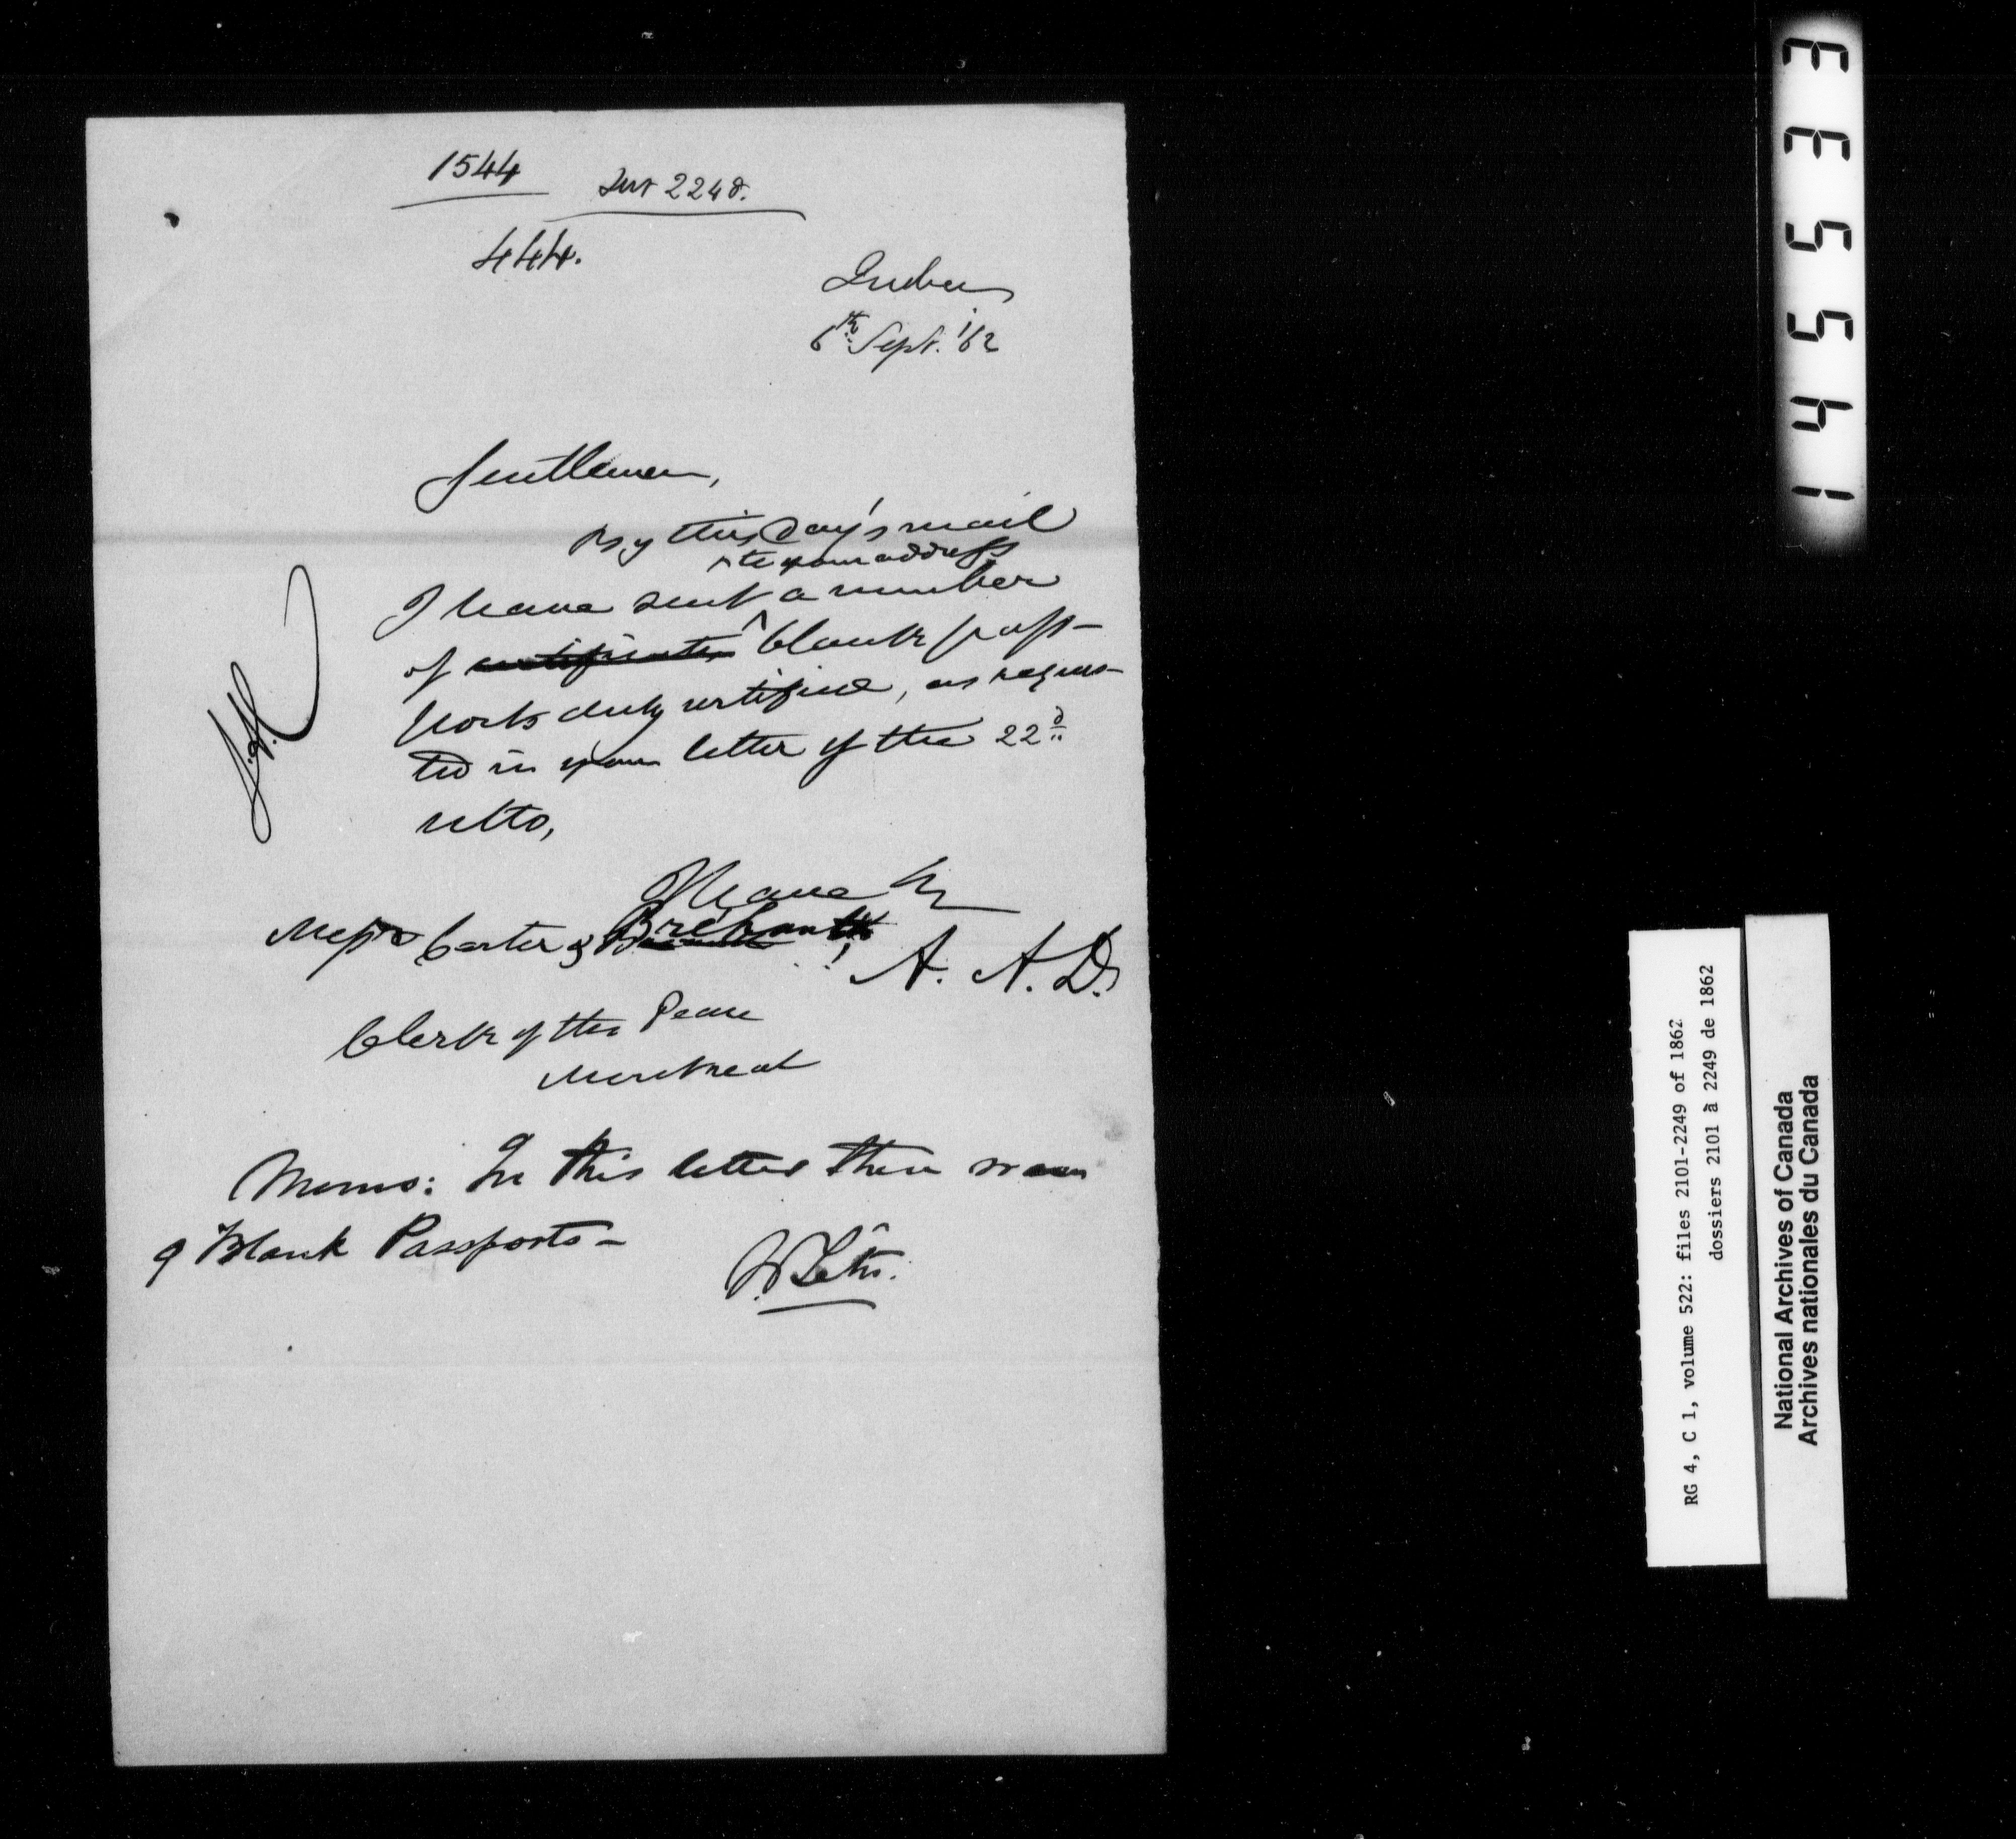 1544
2248.
444.
Quebec
6th Sept. '62
Gentlemen,
By this Day's mail
to your address
I have sent a number
of certificates blank pass-
ports duly certified, as reques-
ted in your letter of the 22d
ulto,
I have &c
Messrs Carter & Bréhaut
A. A. D.
Clerk of the Peace
Montreal
Memo: In this letter there were
9 Blank Passports -
145533
RG 4, C 1, volume 522: files 2101-2249 of 1862
dossiers 2101 à 2249 de 1862
National Archives of Canada
Archives nationales du Canada